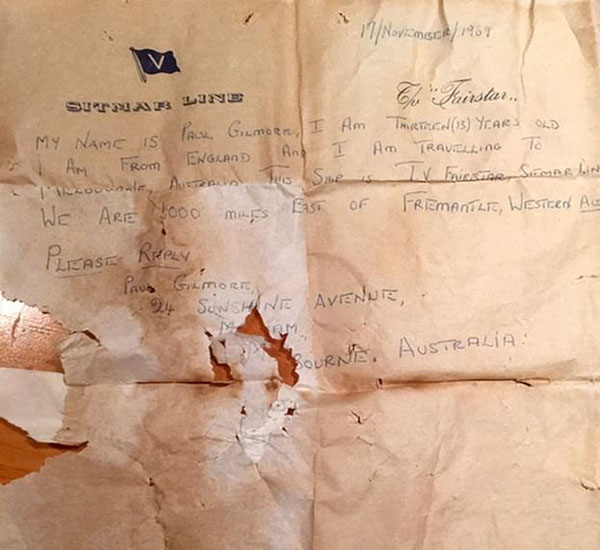 17/November/1969
V
SITMAR LINE
T/v "Fairstar"
MY NAME IS PAUL GILMORE, I AM THIRTEEN(13) YEARS OLD
I AM FROM ENGLAND AND I AM TRAVELLING TO
MELBOURNE, AUSTRALIA THIS SHIP IS T.V FAIRSTAR, SITMAR LIN
WE ARE 1000 MILES EAST OF FREMANTLE, WESTERN AUS
PLEASE REPLY
PAUL GILMORE,
24 SUNSHINE AVENUE,
BOURNE. AUSTRALIA.